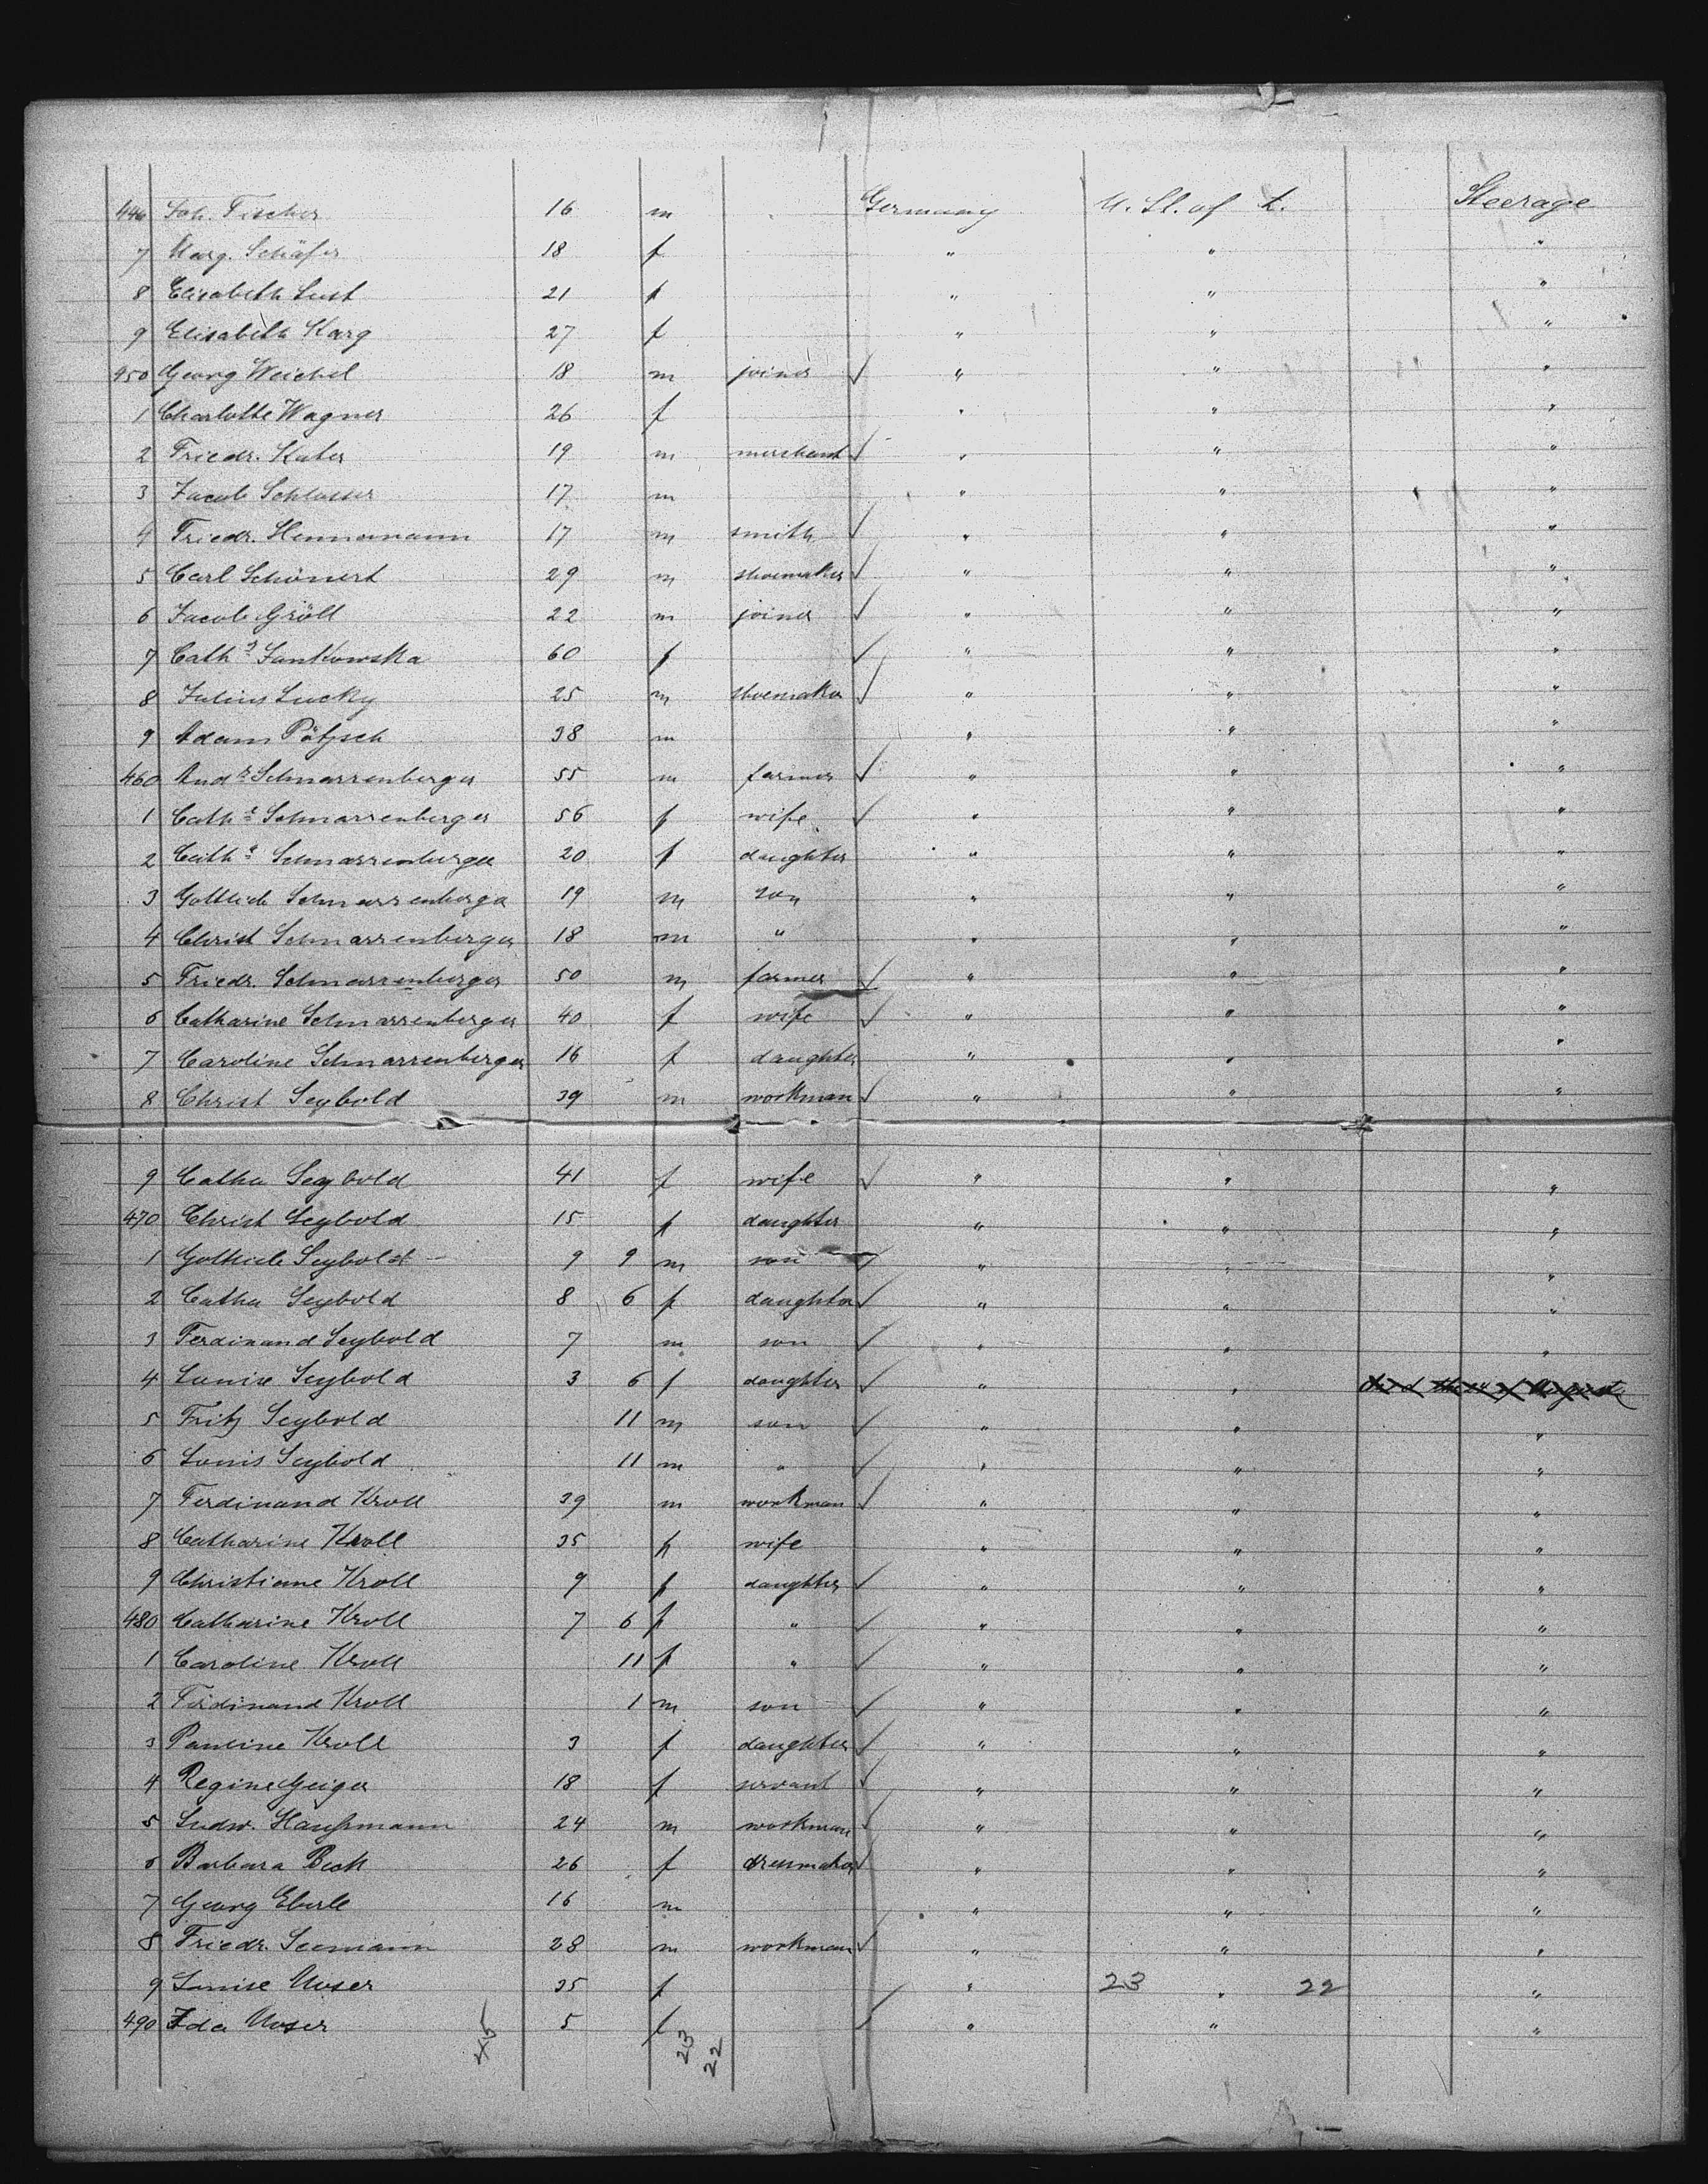 446 Joh. Fischer 16 m Germany U. St. of A. Steerage
7 Marg. Schäfer 18 f " " "
8 Elisabeth Lust 21 f " " "
9 Elisabeth Karg 27 f " " "
450 Georg Weichel 18 m joiner ✓ " " "
1 Charlotte Wagner 26 f " " "
2 Friedr. Kater 19 m merchant ✓ " " "
3 Jacob Schlosser 17 m " " "
4 Friedr. Hennemann 17 m smith ✓ " " "
5 Carl Schönert 29 m shoemaker ✓ " " "
6 Jacob Gröll 22 m joiner ✓ " " "
7 Cath.ª Jankowska 60 f ✓ " " "
8 Julius Lucky 25 m shoemaker ✓ " " "
9 Adam Pötzsch 38 m " " "
460 Andr. Schnarrenberger 55 m farmer ✓ " " "
1 Cath.e Schnarrenberger 56 f wife ✓ " " "
2 Cath.e Schnarrenberger 20 f daughter " " "
3 Gottlieb Schnarrenberger 19 m son " " "
4 Christ Schnarrenberger 18 m " " " "
5 Friedr. Schnarrenberger 50 m farmer ✓ " " "
6 Catharine Schnarrenberger 40 f wife ✓ " " "
7 Caroline Schnarrenberger 16 f daughter " " "
8 Christ Seybold 39 m workman ✓ " " "
9 Catha Seybold 41 f wife ✓ " " "
470 Christ Seybold 15 f daughter " " "
1 Gottlieb Seybold 9 9 m son ✓ " " "
2 Catha Seybold 8 6 f daughter ✓ " " "
3 Ferdinand Seybold 7 m son ✓ " " "
4 Louise Seybold 3 6 f daughter ✓ " "
5 Fritz Seybold 11 m son ✓ " " "
6 Louis Seybold 11 m " ✓ " " "
7 Ferdinand Kroll 39 m workman ✓ " " "
8 Catharine Kroll 35 f wife " " "
9 Christiane Kroll 9 f daughter ✓ " " "
480 Catharine Kroll 7 6 f " ✓ " " "
1 Caroline Kroll 11 f " ✓ " " "
2 Ferdinand Kroll 1 m son ✓ " " "
3 Pauline Kroll 3 f daughter ✓ " " "
4 Regine Geiger 18 f servant ✓ " " "
5 Ludw. Haußmann 24 m workman ✓ " " "
6 Barbara Beck 26 f dressmaker ✓ " " "
7 Georg Eberle 16 m " " "
8 Friedr. Seemann 28 m workman ✓ " " "
9 Louise Moser 35 f " 23 " 22 "
490 Ida Moser 5 f ✓ " " "
45 23 22